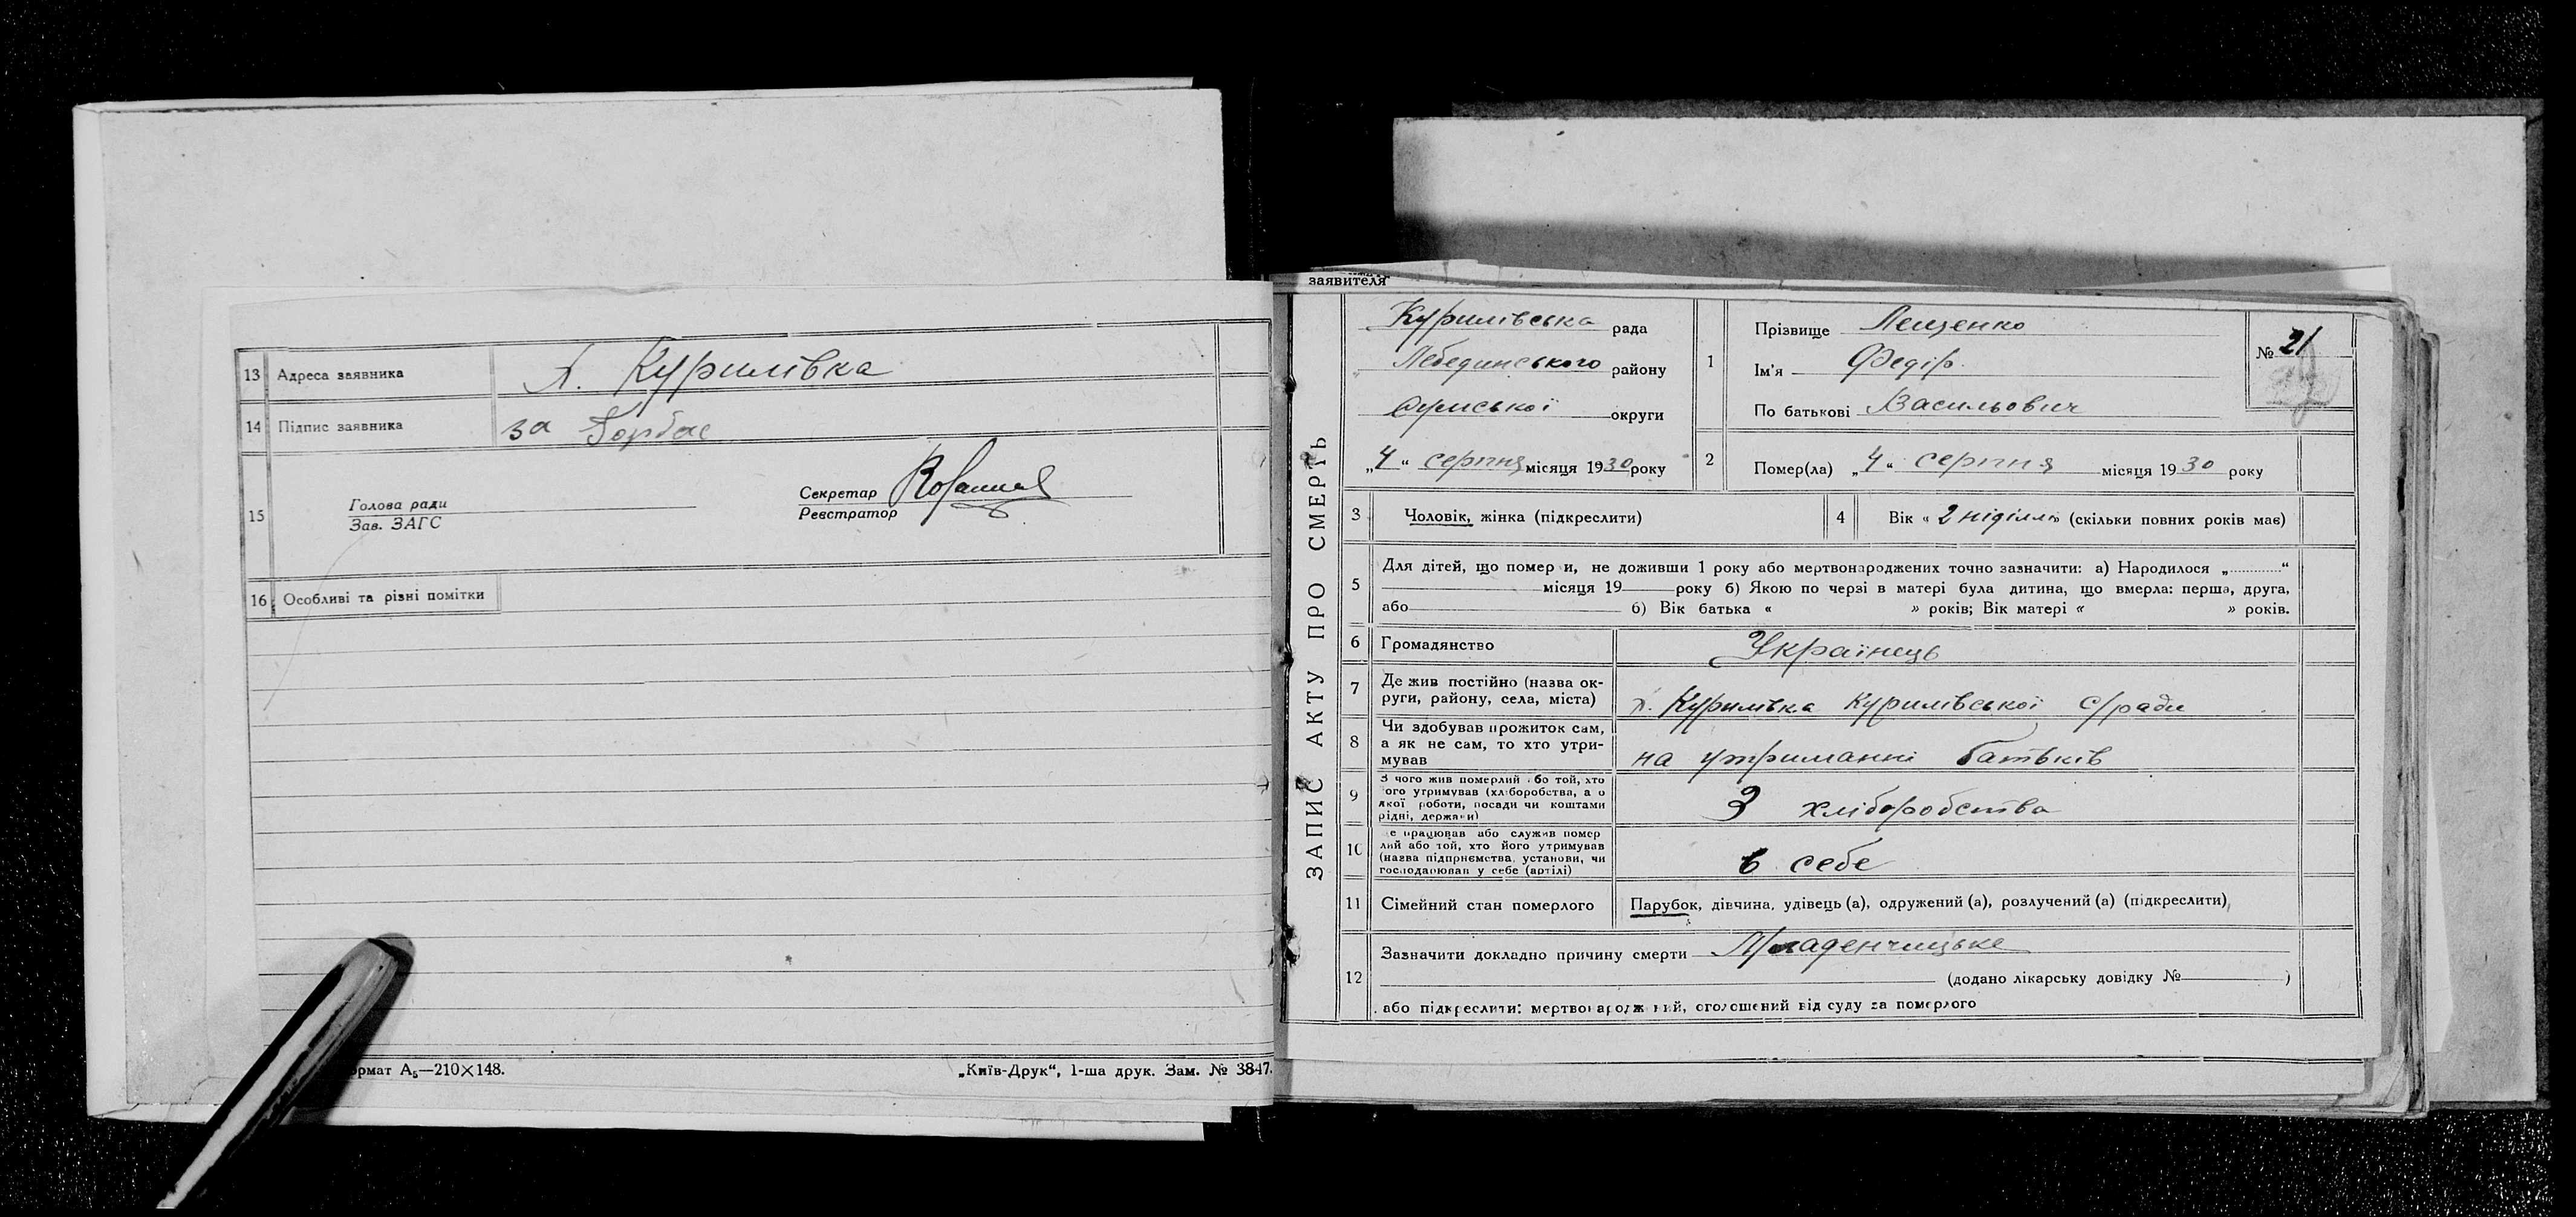 13 Адреса заявника х. Курилівка
14 Підпис заявника за Горбас
15 Голова ради
Зав. ЗАГС
Секретар
Реєстратор
16 Особливі та різні помітки
формат А5—210×148.
„Київ-Друк“, 1-ша друк. Зам. № 3847.
заявителя
ЗАПИС АКТУ ПРО СМЕРТЬ
Курилівська рада
Лебединського району
Сумської округи
„4“ серпня місяця 1930 року
1 Прізвище Лещенко
Ім'я Федір
По батькові Васильович
№ 21
2 Помер(ла) „4“ серпня місяця 1930 року
3 Чоловік, жінка (підкреслити)
4 Вік « 2 ніділі » (скільки повних років має)
5 Для дітей, що померли, не доживши 1 року або мертвонароджених точно зазначити: а) Народилося „ “
місяця 19 року б) Якою по черзі в матері була дитина, що вмерла: перша, друга,
або б) Вік батька « » років; Вік матері « » років.
6 Громадянство Українець
7 Де жив постійно (назва ок-
руги, району, села, міста) х. Курилівка Курилівської с/ради
8 Чи здобував прожиток сам,
а як не сам, то хто утри-
мував на утриманні батьків
9 З чого жив померлий або той, хто
його утримував (хліборобства, а о
якої роботи, посади чи коштами
рідні, держави) З хліборобства
10 Де працював або служив помер
лий або той, хто його утримував
(назва підприємства, установи, чи
господарював у себе (артілі) в себе
11 Сімейний стан померлого Парубок, дівчина, удівець (а), одружений (а), розлучений (а) (підкреслити)
12 Зазначити докладно причину смерти Младенчицьке
(додано лікарську довідку № )
або підкреслити: мертвонароджений, оголошений від суду за померлого